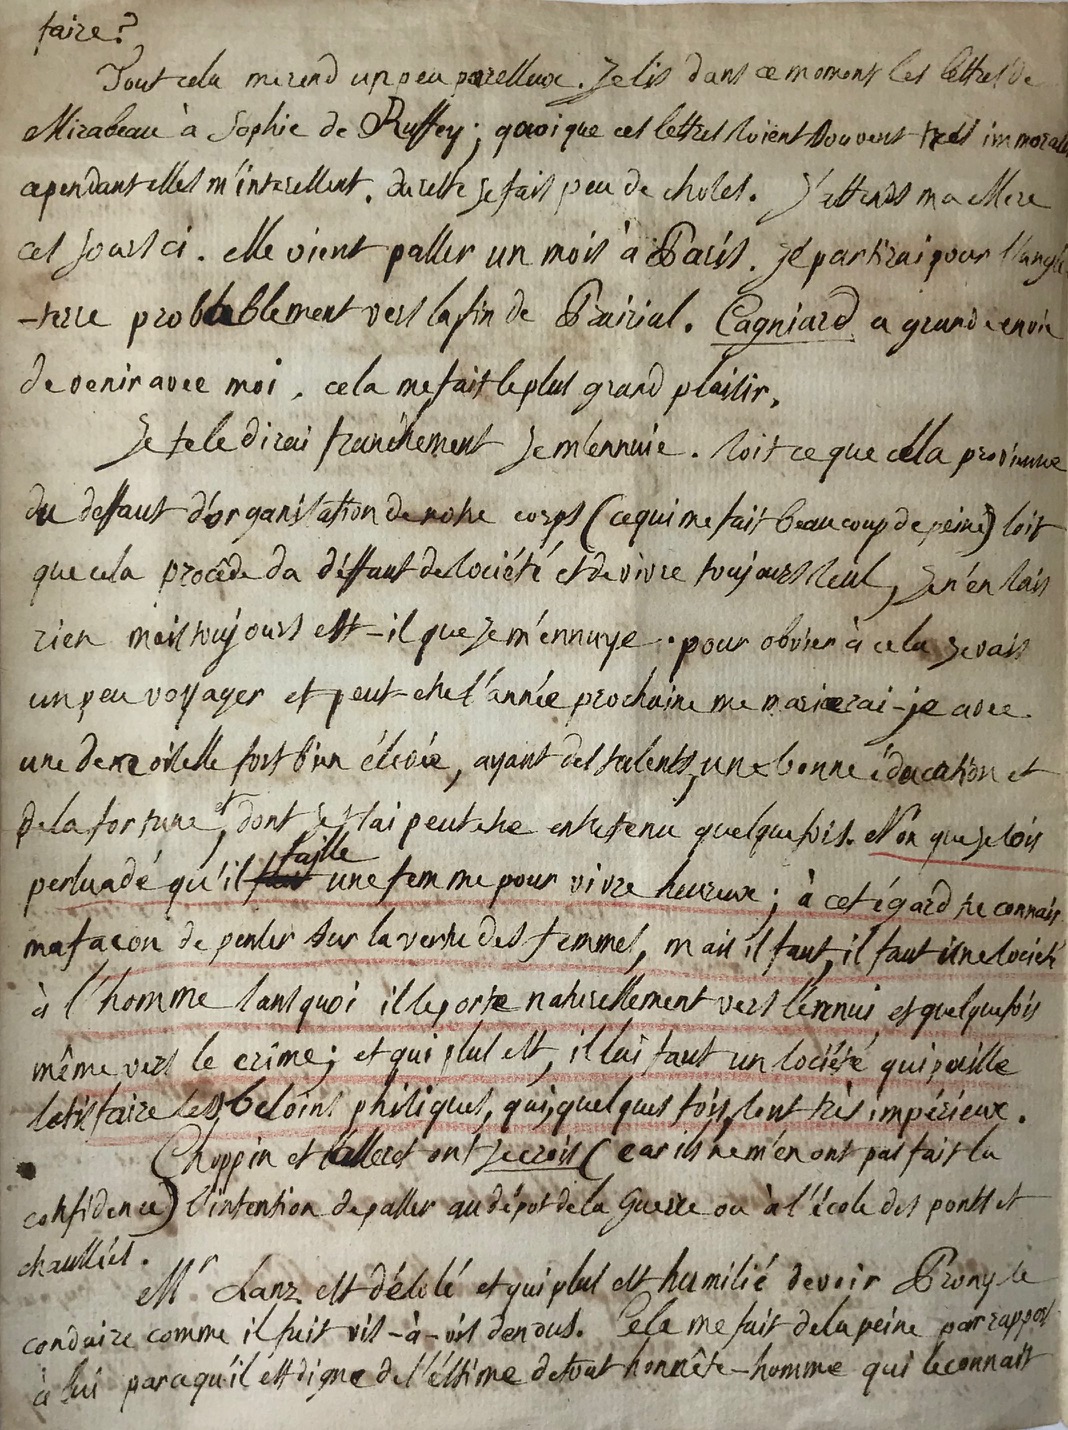 faire?
Tout cela me rend un peu paresseux. Je lis dans ce moment les lettres de
Mirabeau à Sophie de Ruffey; quoique ces lettres soient souvent très immorales
cependant elles m'interessent. du reste je fais peu de choses. J'attends ma Mere
ces jours ci. elle vient passer un mois à Paris. Je partirai pour l'angle
-terre probablement vers la fin de Prairial. Cagniard a grande envie
de venir avec moi, cela me fait le plus grand plaisir.
Je te le dirai franchement je m'ennuie. soit ce que cella provienne
du deffaut d'organisation de notre corps (ce qui me fait beaucoup de peine) soit
que cela procède du déffaut de société et de vivre toujours seul, je n'en sais
rien mais toujours est-il que je m'ennuye. pour obvier à cela je vais
un peu voyager et peut-etre l'année prochaine me marierai-je avec
une demoiselle fort bien élevée, ayant des talents, une bonne éducation et
de la fortune, et dont je t'ai peut etre entretenu quelquefois. Non que je sois
persuadé qu'il faille une femme pour vivre heureux; à cet égard tu connais
ma façon de penser sur la vertu des femmes, mais il faut, il faut une société
à l'homme sans quoi il se porte naturellement vers l'ennui et quelquefois
même vers le crime; et qui plus est, il lui faut un société qui puisse
satisfaire ses besoins phisiques, qui, quelques fois, sont très impérieux.
Choppin et ont je crois (car ils ne m'en ont pas fait la
confidence) l'intention de passer au dépot de la Guerre ou à l'école des ponts et
chaussées.
Mr Lanz est désolé et qui plus est humilié de voir Prony se
conduire comme il fait vis-à-vis de nous. Cela me fait de la peine par rapport
à lui parce qu'il est digne de l'estime de tout honnête-homme qui le connait